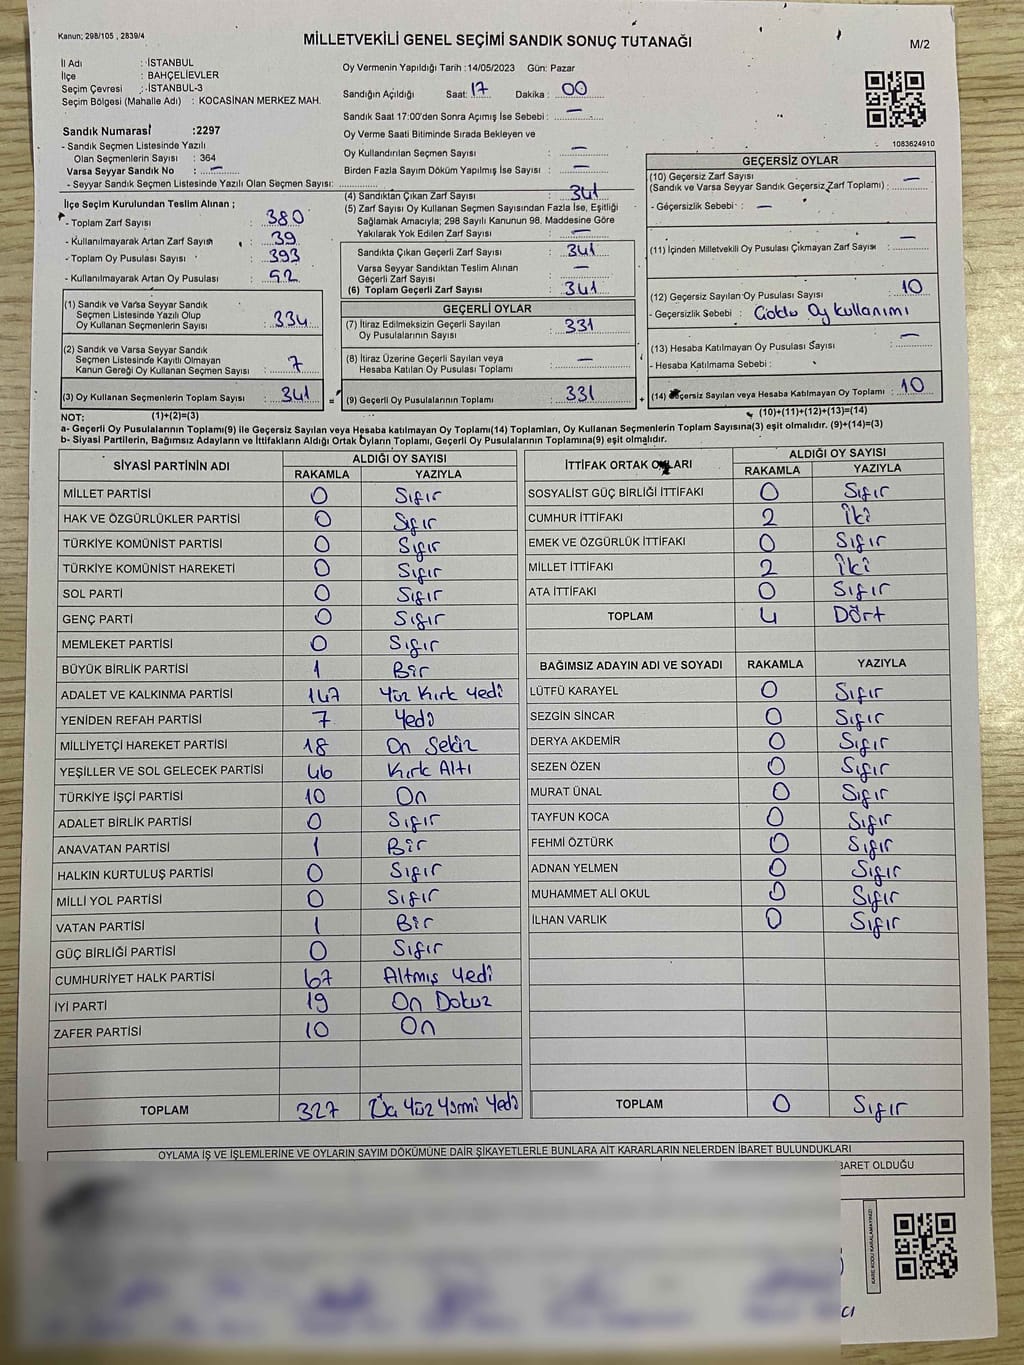 Kanun; 298/105 , 2839/4
MİLLETVEKİLİ GENEL SEÇİMİ SANDIK SONUÇ TUTANAĞI
M/2
İl Adı : İSTANBUL
İlçe : BAHÇELİEVLER
Seçim Çevresi : İSTANBUL-3
Seçim Bölgesi (Mahalle Adı) : KOCASİNAN MERKEZ MAH.
Sandık Numarası :2297
- Sandık Seçmen Listesinde Yazılı
Olan Seçmenlerin Sayısı : 364
Varsa Seyyar Sandık No : —
- Seyyar Sandık Seçmen Listesinde Yazılı Olan Seçmen Sayısı:
Oy Vermenin Yapıldığı Tarih :14/05/2023 Gün: Pazar
Sandığın Açıldığı Saat: 17 Dakika : 00
Sandık Saat 17:00'den Sonra Açımış İse Sebebi : —
Oy Verme Saati Bitiminde Sırada Bekleyen ve
Oy Kullandırılan Seçmen Sayısı : —
Birden Fazla Sayım Döküm Yapılmış İse Sayısı : —
1083624910
İlçe Seçim Kurulundan Teslim Alınan ;
- Toplam Zarf Sayısı : 380
- Kullanılmayarak Artan Zarf Sayısı : 39
- Toplam Oy Pusulası Sayısı : 393
- Kullanılmayarak Artan Oy Pusulası : 52
(1) Sandık ve Varsa Seyyar Sandık
Seçmen Listesinde Yazılı Olup
Oy Kullanan Seçmenlerin Sayısı : 334
(2) Sandık ve Varsa Seyyar Sandık
Seçmen Listesinde Kayıtlı Olmayan
Kanun Gereği Oy Kullanan Seçmen Sayısı : 7
(3) Oy Kullanan Seçmenlerin Toplam Sayısı : 341
(4) Sandıktan Çıkan Zarf Sayısı : 341
(5) Zarf Sayısı Oy Kullanan Seçmen Sayısından Fazla İse, Eşitliği
Sağlamak Amacıyla; 298 Sayılı Kanunun 98. Maddesine Göre
Yakılarak Yok Edilen Zarf Sayısı : —
Sandıkta Çıkan Geçerli Zarf Sayısı : 341
Varsa Seyyar Sandıktan Teslim Alınan
Geçerli Zarf Sayısı : —
(6) Toplam Geçerli Zarf Sayısı : 341
GEÇERLİ OYLAR
(7) İtiraz Edilmeksizin Geçerli Sayılan
Oy Pusulalarının Sayısı : 331
(8) İtiraz Üzerine Geçerli Sayılan veya
Hesaba Katılan Oy Pusulası Toplamı : —
= (9) Geçerli Oy Pusulalarının Toplamı : 331
GEÇERSİZ OYLAR
(10) Geçersiz Zarf Sayısı
(Sandık ve Varsa Seyyar Sandık Geçersiz Zarf Toplamı) : —
- Geçersizlik Sebebi : —
(11) İçinden Milletvekili Oy Pusulası Çıkmayan Zarf Sayısı : —
(12) Geçersiz Sayılan Oy Pusulası Sayısı : 10
- Geçersizlik Sebebi : Çoklu Oy kullanımı
(13) Hesaba Katılmayan Oy Pusulası Sayısı : —
- Hesaba Katılmama Sebebi :
+ (14) Geçersiz Sayılan veya Hesaba Katılmayan Oy Toplamı : 10
NOT: (1)+(2)=(3)
(10)+(11)+(12)+(13)=(14)
a- Geçerli Oy Pusulalarının Toplamı(9) ile Geçersiz Sayılan veya Hesaba katılmayan Oy Toplamı(14) Toplamları, Oy Kullanan Seçmenlerin Toplam Sayısına(3) eşit olmalıdır. (9)+(14)=(3)
b- Siyasi Partilerin, Bağımsız Adayların ve İttifakların Aldığı Ortak Oyların Toplamı, Geçerli Oy Pusulalarının Toplamına(9) eşit olmalıdır.
SİYASİ PARTİNİN ADI ALDIĞI OY SAYISI
RAKAMLA YAZIYLA
MİLLET PARTİSİ 0 Sıfır
HAK VE ÖZGÜRLÜKLER PARTİSİ 0 Sıfır
TÜRKİYE KOMÜNİST PARTİSİ 0 Sıfır
TÜRKİYE KOMÜNİST HAREKETİ 0 Sıfır
SOL PARTİ 0 Sıfır
GENÇ PARTİ 0 Sıfır
MEMLEKET PARTİSİ 0 Sıfır
BÜYÜK BİRLİK PARTİSİ 1 Bir
ADALET VE KALKINMA PARTİSİ 147 Yüz Kırk Yedi
YENİDEN REFAH PARTİSİ 7 Yedi
MİLLİYETÇİ HAREKET PARTİSİ 18 On Sekiz
YEŞİLLER VE SOL GELECEK PARTİSİ 46 Kırk Altı
TÜRKİYE İŞÇİ PARTİSİ 10 On
ADALET BİRLİK PARTİSİ 0 Sıfır
ANAVATAN PARTİSİ 1 Bir
HALKIN KURTULUŞ PARTİSİ 0 Sıfır
MİLLİ YOL PARTİSİ 0 Sıfır
VATAN PARTİSİ 1 Bir
GÜÇ BİRLİĞİ PARTİSİ 0 Sıfır
CUMHURİYET HALK PARTİSİ 67 Altmış Yedi
İYİ PARTİ 19 On Dokuz
ZAFER PARTİSİ 10 On
TOPLAM 327 Üç Yüz Yirmi Yedi
İTTİFAK ORTAK OYLARI ALDIĞI OY SAYISI
RAKAMLA YAZIYLA
SOSYALİST GÜÇ BİRLİĞİ İTTİFAKI 0 Sıfır
CUMHUR İTTİFAKI 2 İki
EMEK VE ÖZGÜRLÜK İTTİFAKI 0 Sıfır
MİLLET İTTİFAKI 2 İki
ATA İTTİFAKI 0 Sıfır
TOPLAM 4 Dört
BAĞIMSIZ ADAYIN ADI VE SOYADI RAKAMLA YAZIYLA
LÜTFÜ KARAYEL 0 Sıfır
SEZGİN SİNCAR 0 Sıfır
DERYA AKDEMİR 0 Sıfır
SEZEN ÖZEN 0 Sıfır
MURAT ÜNAL 0 Sıfır
TAYFUN KOCA 0 Sıfır
FEHMİ ÖZTÜRK 0 Sıfır
ADNAN YELMEN 0 Sıfır
MUHAMMET ALİ OKUL 0 Sıfır
İLHAN VARLIK 0 Sıfır
TOPLAM 0 Sıfır
OYLAMA İŞ VE İŞLEMLERİNE VE OYLARIN SAYIM DÖKÜMÜNE DAİR ŞİKAYETLERLE BUNLARA AİT KARARLARIN NELERDEN İBARET BULUNDUKLARI
BARET OLDUĞU
KARE KODU KARALAMAYINIZ!
CI